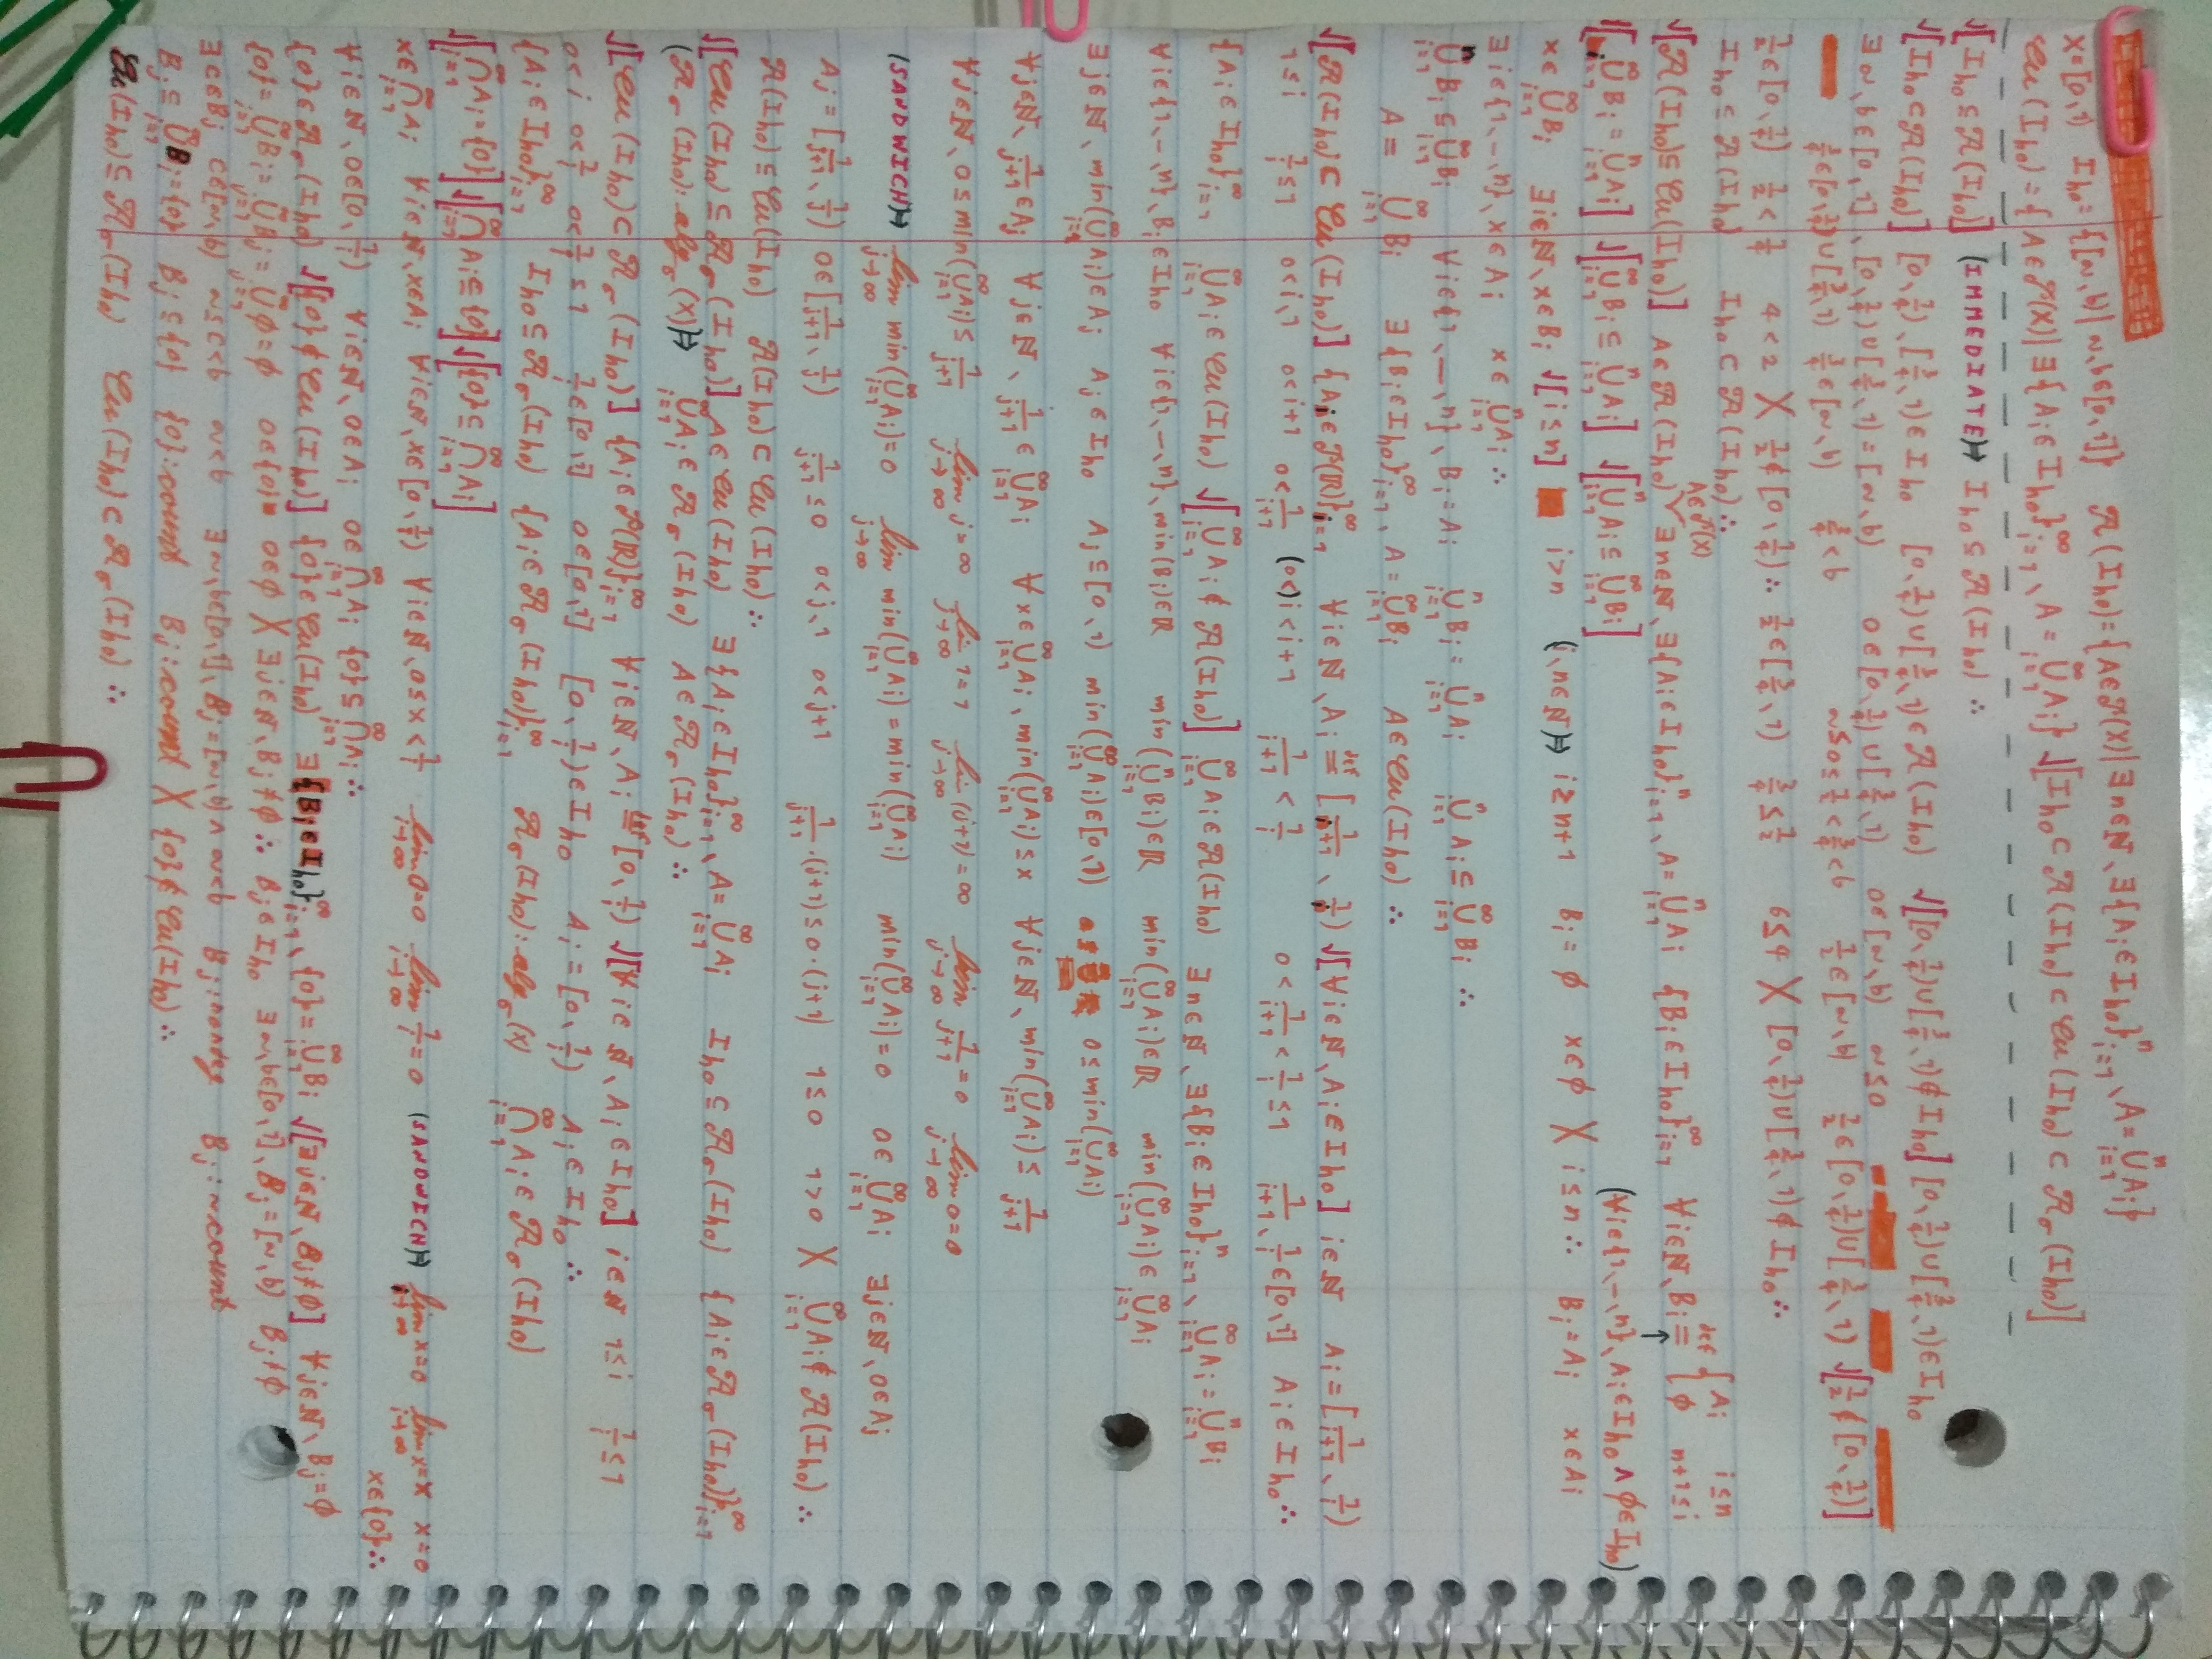 X=[0,1) I_ho={[a,b)|a,b∈[0,1]} 𝒜(I_ho)={A∈𝒫(X)|∃n∈ℕ,∃{A_i∈I_ho}_{i=1}^n, A=⋃_{i=1}^n A_i}
Cu(I_ho)={A∈𝒫(X)|∃{A_i∈I_ho}_{i=1}^∞, A=⋃_{i=1}^∞ A_i} √[I_ho⊂𝒜(I_ho)⊂Cu(I_ho)⊂𝒜_σ(I_ho)]
√[I_ho⊆𝒜(I_ho)] (IMMEDIATE)↦ I_ho⊆𝒜(I_ho) ∴
√[I_ho⊂𝒜(I_ho)] [0,1/4),[3/4,1)∈I_ho [0,1/4)∪[3/4,1)∈𝒜(I_ho) √[[0,1/4)∪[3/4,1)∉I_ho] [0,1/4)∪[3/4,1)∈I_ho
∃a,b∈[0,1],[0,1/4)∪[3/4,1)=[a,b) 0∈[0,1/4)∪[3/4,1) 0∈[a,b) a≤0
3/4∈[0,1/4)∪[3/4,1) 3/4∈[a,b) 3/4<b a≤0≤1/2<3/4<b 1/2∈[a,b) 1/2∈[0,1/4)∪[3/4,1) √[1/2∉[0,1/4)]
1/2∈[0,1/4) 1/2<1/4 4<2 X 1/2∉[0,1/4)∴ 1/2∈[3/4,1) 3/4≤1/2 6≤4 X [0,1/4)∪[3/4,1)∉I_ho∴
I_ho⊆𝒜(I_ho) I_ho⊂𝒜(I_ho)∴
√[𝒜(I_ho)⊆Cu(I_ho)] A∈𝒜(I_ho) A∈𝒫(X) ∃n∈ℕ,∃{A_i∈I_ho}_{i=1}^n, A=⋃_{i=1}^n A_i {B_i∈I_ho}_{i=1}^∞ ∀i∈ℕ,B_i≝{A_i i≤n; ∅ n+1≤i
√[⋃_{i=1}^∞ B_i=⋃_{i=1}^n A_i] √[⋃_{i=1}^∞ B_i⊆⋃_{i=1}^n A_i] √[⋃_{i=1}^n A_i⊆⋃_{i=1}^∞ B_i] (∀i∈{1,–,n},A_i∈I_ho∧∅∈I_ho)
x∈⋃_{i=1}^∞ B_i ∃i∈ℕ,x∈B_i √[i≤n] i>n (i,n∈ℕ)↦ i≥n+1 B_i=∅ x∈∅ X i≤n∴ B_i=A_i x∈A_i
∃i∈{1,–,n},x∈A_i x∈⋃_{i=1}^n A_i∴
⋃_{i=1}^n B_i⊆⋃_{i=1}^∞ B_i ∀i∈{1,–,n},B_i=A_i ⋃_{i=1}^n B_i=⋃_{i=1}^n A_i ⋃_{i=1}^n A_i⊆⋃_{i=1}^∞ B_i∴
A=⋃_{i=1}^∞ B_i ∃{B_i∈I_ho}_{i=1}^∞, A=⋃_{i=1}^∞ B_i A∈Cu(I_ho)∴
√[𝒜(I_ho)⊂Cu(I_ho)] {A_i∈𝒫(ℝ)}_{i=1}^∞ ∀i∈ℕ,A_i≝[1/(i+1),1/i) √[∀i∈ℕ,A_i∈I_ho] i∈ℕ A_i=[1/(i+1),1/i)
1≤i 1/i≤1 0<i,1 0<i+1 0<1/(i+1) (0<)i<i+1 1/(i+1)<1/i 0<1/(i+1)<1/i≤1 1/(i+1),1/i∈[0,1] A_i∈I_ho∴
{A_i∈I_ho}_{i=1}^∞ ⋃_{i=1}^∞ A_i∈Cu(I_ho) √[⋃_{i=1}^∞ A_i∉𝒜(I_ho)] ⋃_{i=1}^∞ A_i∈𝒜(I_ho) ∃n∈ℕ,∃{B_i∈I_ho}_{i=1}^n, ⋃_{i=1}^∞ A_i=⋃_{i=1}^n B_i
∀i∈{1,–,n},B_i∈I_ho ∀i∈{1,–,n},min(B_i)∈ℝ min(⋃_{i=1}^n B_i)∈ℝ min(⋃_{i=1}^∞ A_i)∈ℝ min(⋃_{i=1}^∞ A_i)∈⋃_{i=1}^∞ A_i
∃j∈ℕ,min(⋃_{i=1}^∞ A_i)∈A_j A_j∈I_ho A_j⊆[0,1) min(⋃_{i=1}^∞ A_i)∈[0,1) 0≤min(⋃_{i=1}^∞ A_i)
∀j∈ℕ,1/(j+1)∈A_j ∀j∈ℕ,1/(j+1)∈⋃_{i=1}^∞ A_i ∀x∈⋃_{i=1}^∞ A_i,min(⋃_{i=1}^∞ A_i)≤x ∀j∈ℕ,min(⋃_{i=1}^∞ A_i)≤1/(j+1)
∀j∈ℕ,0≤min(⋃_{i=1}^∞ A_i)≤1/(j+1) lim_{j→∞} j=∞ lim_{j→∞} 1=1 lim_{j→∞}(j+1)=∞ lim_{j→∞} 1/(j+1)=0 lim_{j→∞} 0=0
(SANDWICH)↦ lim_{j→∞} min(⋃_{i=1}^∞ A_i)=0 lim_{j→∞} min(⋃_{i=1}^∞ A_i)=min(⋃_{i=1}^∞ A_i) min(⋃_{i=1}^∞ A_i)=0 0∈⋃_{i=1}^∞ A_i ∃j∈ℕ,0∈A_j
A_j=[1/(j+1),1/j) 0∈[1/(j+1),1/j) 1/(j+1)≤0 0<j,1 0<j+1 1/(j+1)·(j+1)≤0·(j+1) 1≤0 1>0 X ⋃_{i=1}^∞ A_i∉𝒜(I_ho)∴
𝒜(I_ho)⊆Cu(I_ho) 𝒜(I_ho)⊂Cu(I_ho)∴
√[Cu(I_ho)⊆𝒜_σ(I_ho)] A∈Cu(I_ho) ∃{A_i∈I_ho}_{i=1}^∞, A=⋃_{i=1}^∞ A_i I_ho⊆𝒜_σ(I_ho) {A_i∈𝒜_σ(I_ho)}_{i=1}^∞
(𝒜_σ(I_ho):alg_σ(X))↦ ⋃_{i=1}^∞ A_i∈𝒜_σ(I_ho) A∈𝒜_σ(I_ho)∴
√[Cu(I_ho)⊂𝒜_σ(I_ho)] {A_i∈𝒫(ℝ)}_{i=1}^∞ ∀i∈ℕ,A_i≝[0,1/i) √[∀i∈ℕ,A_i∈I_ho] i∈ℕ 1≤i 1/i≤1
0<i 0<1/i 0<1/i≤1 1/i∈[0,1] 0∈[0,1] [0,1/i)∈I_ho A_i=[0,1/i) A_i∈I_ho∴
{A_i∈I_ho}_{i=1}^∞ I_ho⊆𝒜_σ(I_ho) {A_i∈𝒜_σ(I_ho)}_{i=1}^∞ 𝒜_σ(I_ho):alg_σ(X) ⋂_{i=1}^∞ A_i∈𝒜_σ(I_ho)
√[⋂_{i=1}^∞ A_i={0}] √[⋂_{i=1}^∞ A_i⊆{0}] √[{0}⊆⋂_{i=1}^∞ A_i]
x∈⋂_{i=1}^∞ A_i ∀i∈ℕ,x∈A_i ∀i∈ℕ,x∈[0,1/i) ∀i∈ℕ,0≤x<1/i lim_{i→∞} 0=0 lim_{i→∞} 1/i=0 (SANDWICH)↦ lim_{i→∞} x=0 lim_{i→∞} x=x x=0
x∈{0}∴
∀i∈ℕ,0∈[0,1/i) ∀i∈ℕ,0∈A_i 0∈⋂_{i=1}^∞ A_i {0}⊆⋂_{i=1}^∞ A_i∴
{0}∈𝒜_σ(I_ho) √[{0}∉Cu(I_ho)] {0}∈Cu(I_ho) ∃{B_i∈I_ho}_{i=1}^∞, {0}=⋃_{i=1}^∞ B_i √[∃j∈ℕ,B_j≠∅] ∀j∈ℕ,B_j=∅
{0}=⋃_{i=1}^∞ B_i=⋃_{j=1}^∞ B_j=⋃_{j=1}^∞ ∅=∅ 0∈{0} 0∈∅ X ∃j∈ℕ,B_j≠∅∴ B_j∈I_ho ∃a,b∈[0,1],B_j=[a,b) B_j≠∅
∃c∈B_j c∈[a,b) a≤c<b a<b ∃a,b∈[0,1],B_j=[a,b)∧a<b B_j:nondeg B_j:uncount
B_j⊆⋃_{i=1}^∞ B_i={0} B_j⊆{0} {0}:count B_j:count X {0}∉Cu(I_ho)∴
Cu(I_ho)⊆𝒜_σ(I_ho) Cu(I_ho)⊂𝒜_σ(I_ho)∴